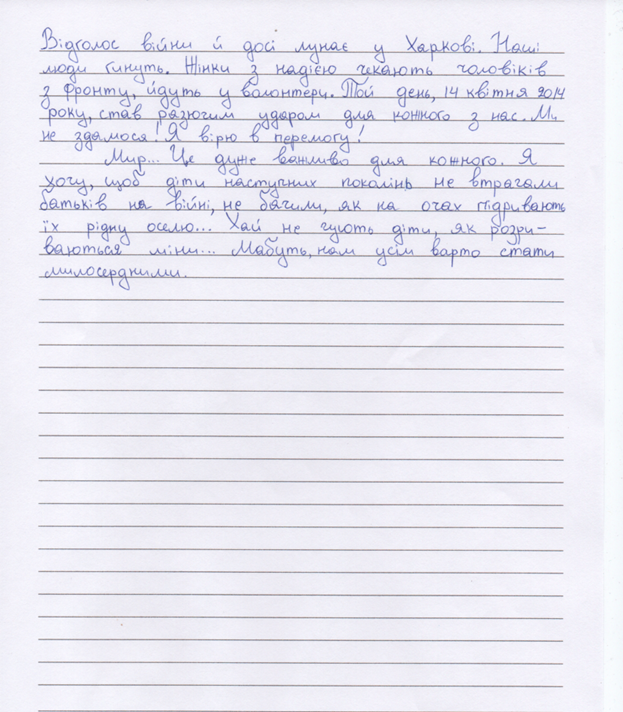 Відголос війни й досі лунає у Харкові. Наші
люди гинуть. Жінки з надією чекають чоловіків
з фронту, йдуть у волонтери. Той день, 14 квітня 2014
року, став разючим ударом для кожного з нас. Ми
не здамося! Я вірю в перемогу!
Мир... Це дуже важливо для кожного. Я
хочу, щоб діти наступних поколінь не втрачали
батьків на війні, не бачили, як на очах підривають
їх рідну оселю... Хай не чують діти, як розри-
ваються міни... Мабуть, нам усім варто стати
милосердними.